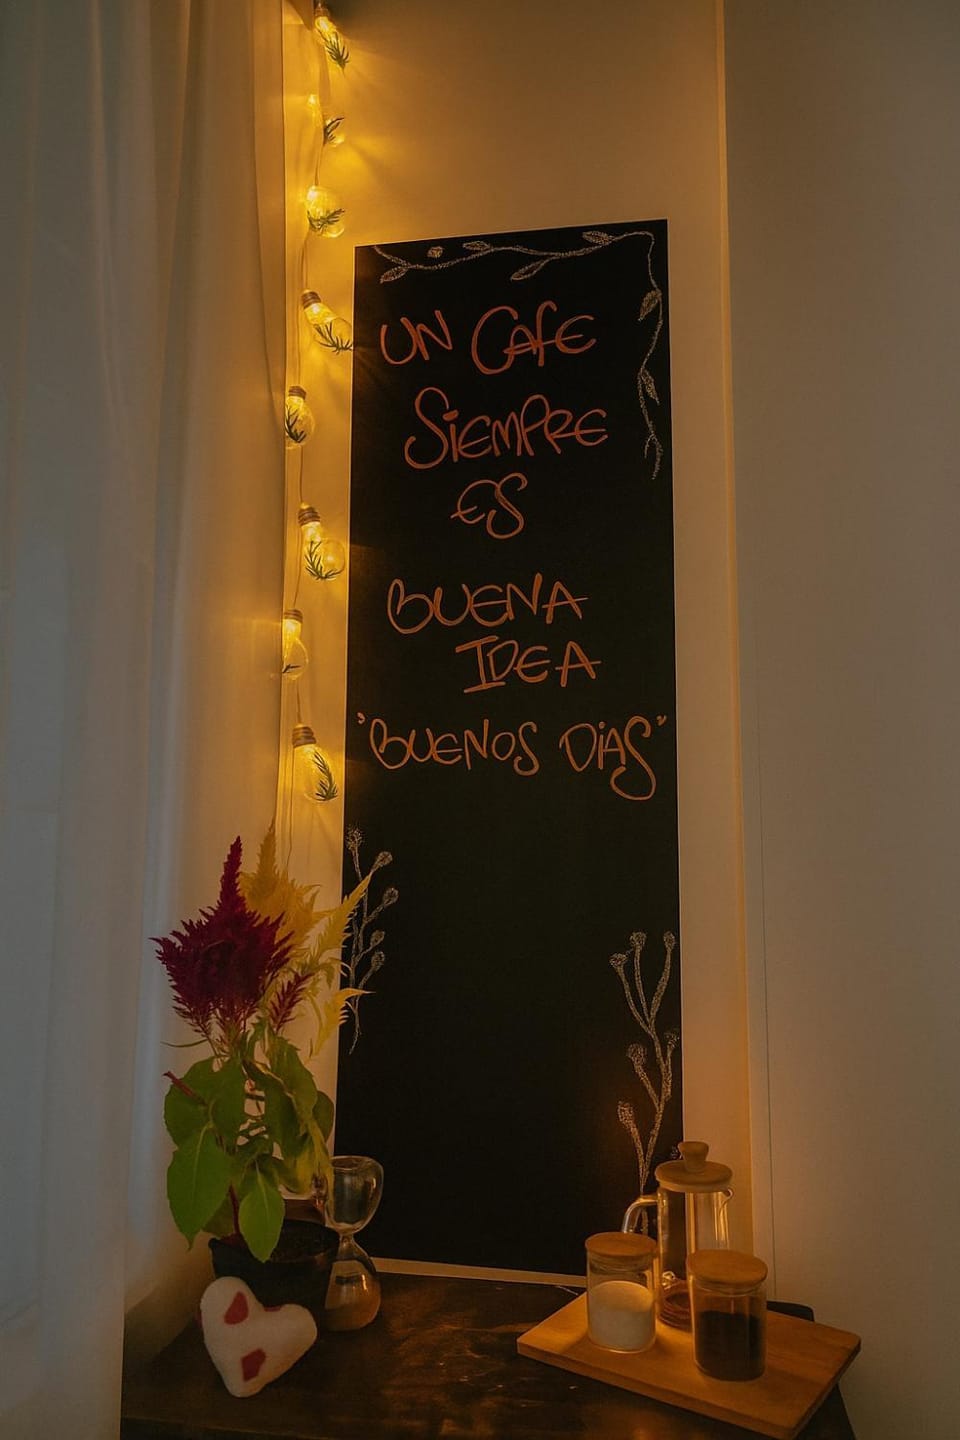 UN CAFE
SIEMPRE
ES
BUENA
IDEA
"BUENOS DiAS"